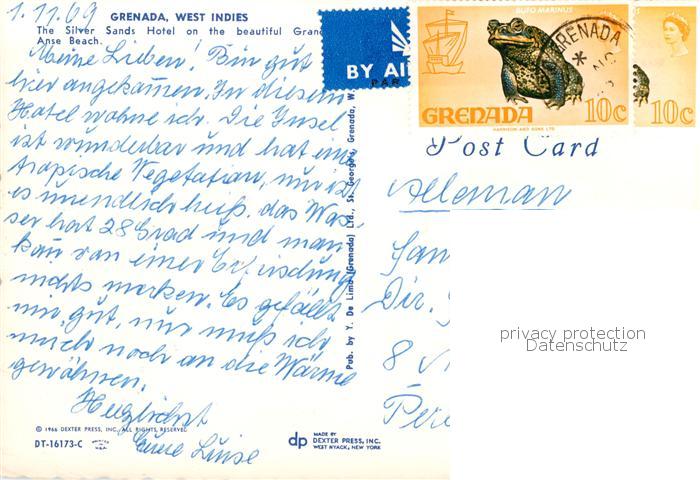 1.11.69
GRENADA, WEST INDIES
The Silver Sands Hotel on the beautiful Grand
Anse Beach.
Meine Lieben! Bin gut
hier angekommen. In diesem
Hotel wohne ich. Die Insel
ist wunderbar und hat eine
tropische Vegetation, nur ist
es unendlich heiß. das Was-
ser hat 28 Grad und man
kan von einer Erfrischung
nichts merken. Es gefällt
mir gut, nur muß ich
mich noch an die Wärme
gewöhnen.
Herzlichst
Eure Luise
© 1966 DEXTER PRESS, INC. ALL RIGHTS RESERVED
DT-16173-C
PRINTED IN U.S.A.
dp
MADE BY
DEXTER PRESS, INC.
WEST NYACK, NEW YORK
Pub. by Y. De Lima (Grenada) Ltd., St. Georges, Grenada, W.
BY AI
PAR
BUFO MARINUS
GRENADA 10c
HARRISON AND SONS LTD
GRENADA
10c
Post Card
Alleman
Dir.
8
privacy protection
Datenschutz